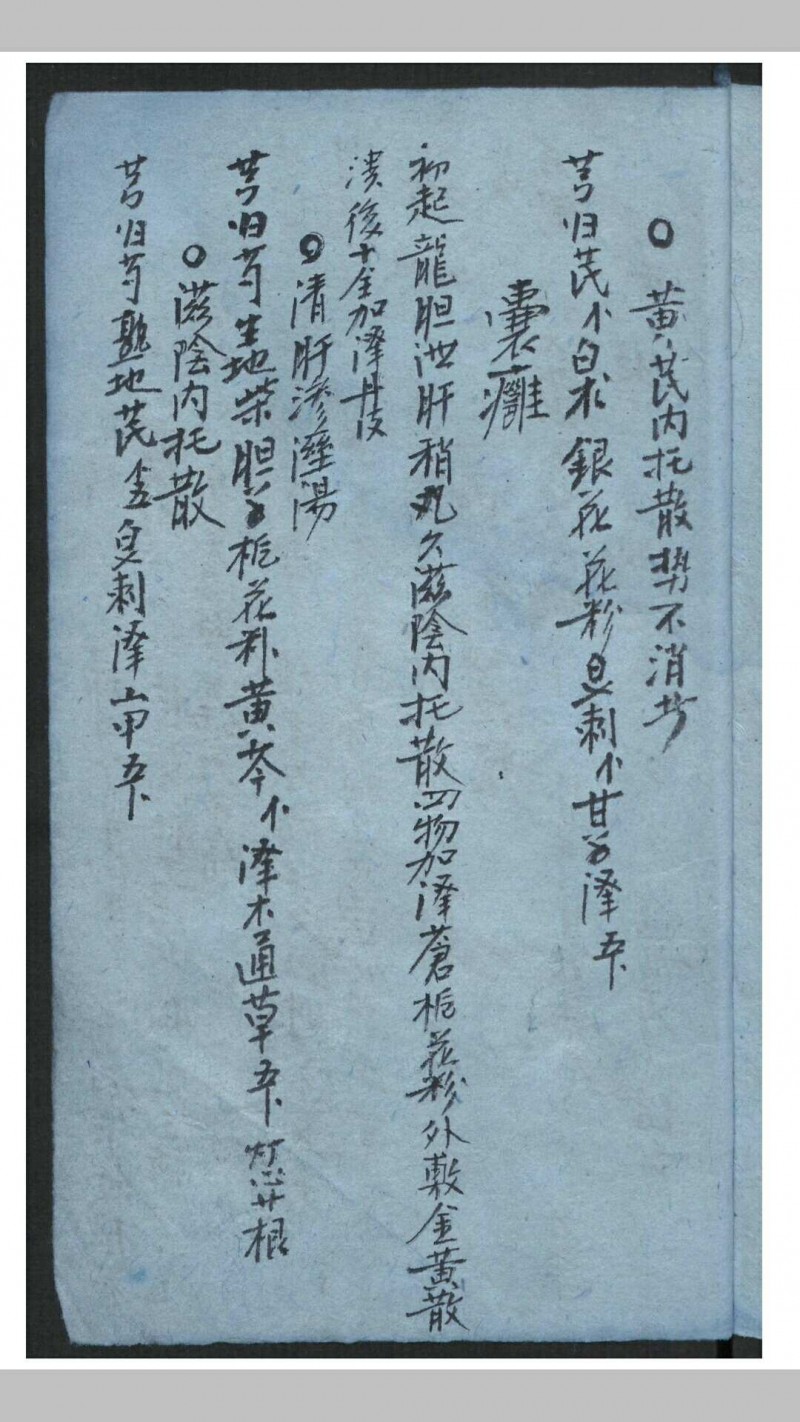 ○黄芪内托散势不消者
芎归芪小白术銀花花粉皂刺小甘泽
囊癰
初起龍胆泄肝稍久滋陰内托散四物加泽蒼栀花粉外敷金黄散
潰後十全加泽丹皮
○清肝滲溼湯
芎归芍生地柴胆栀花粉黄芩小泽木通草灯心廿根
○滋陰内托散
芎归芍熟地芪皂刺泽山甲